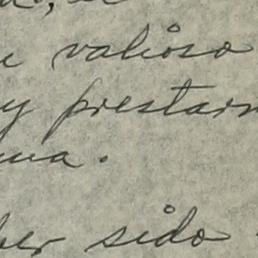 valioso
y prestarm
ma.
ber sido